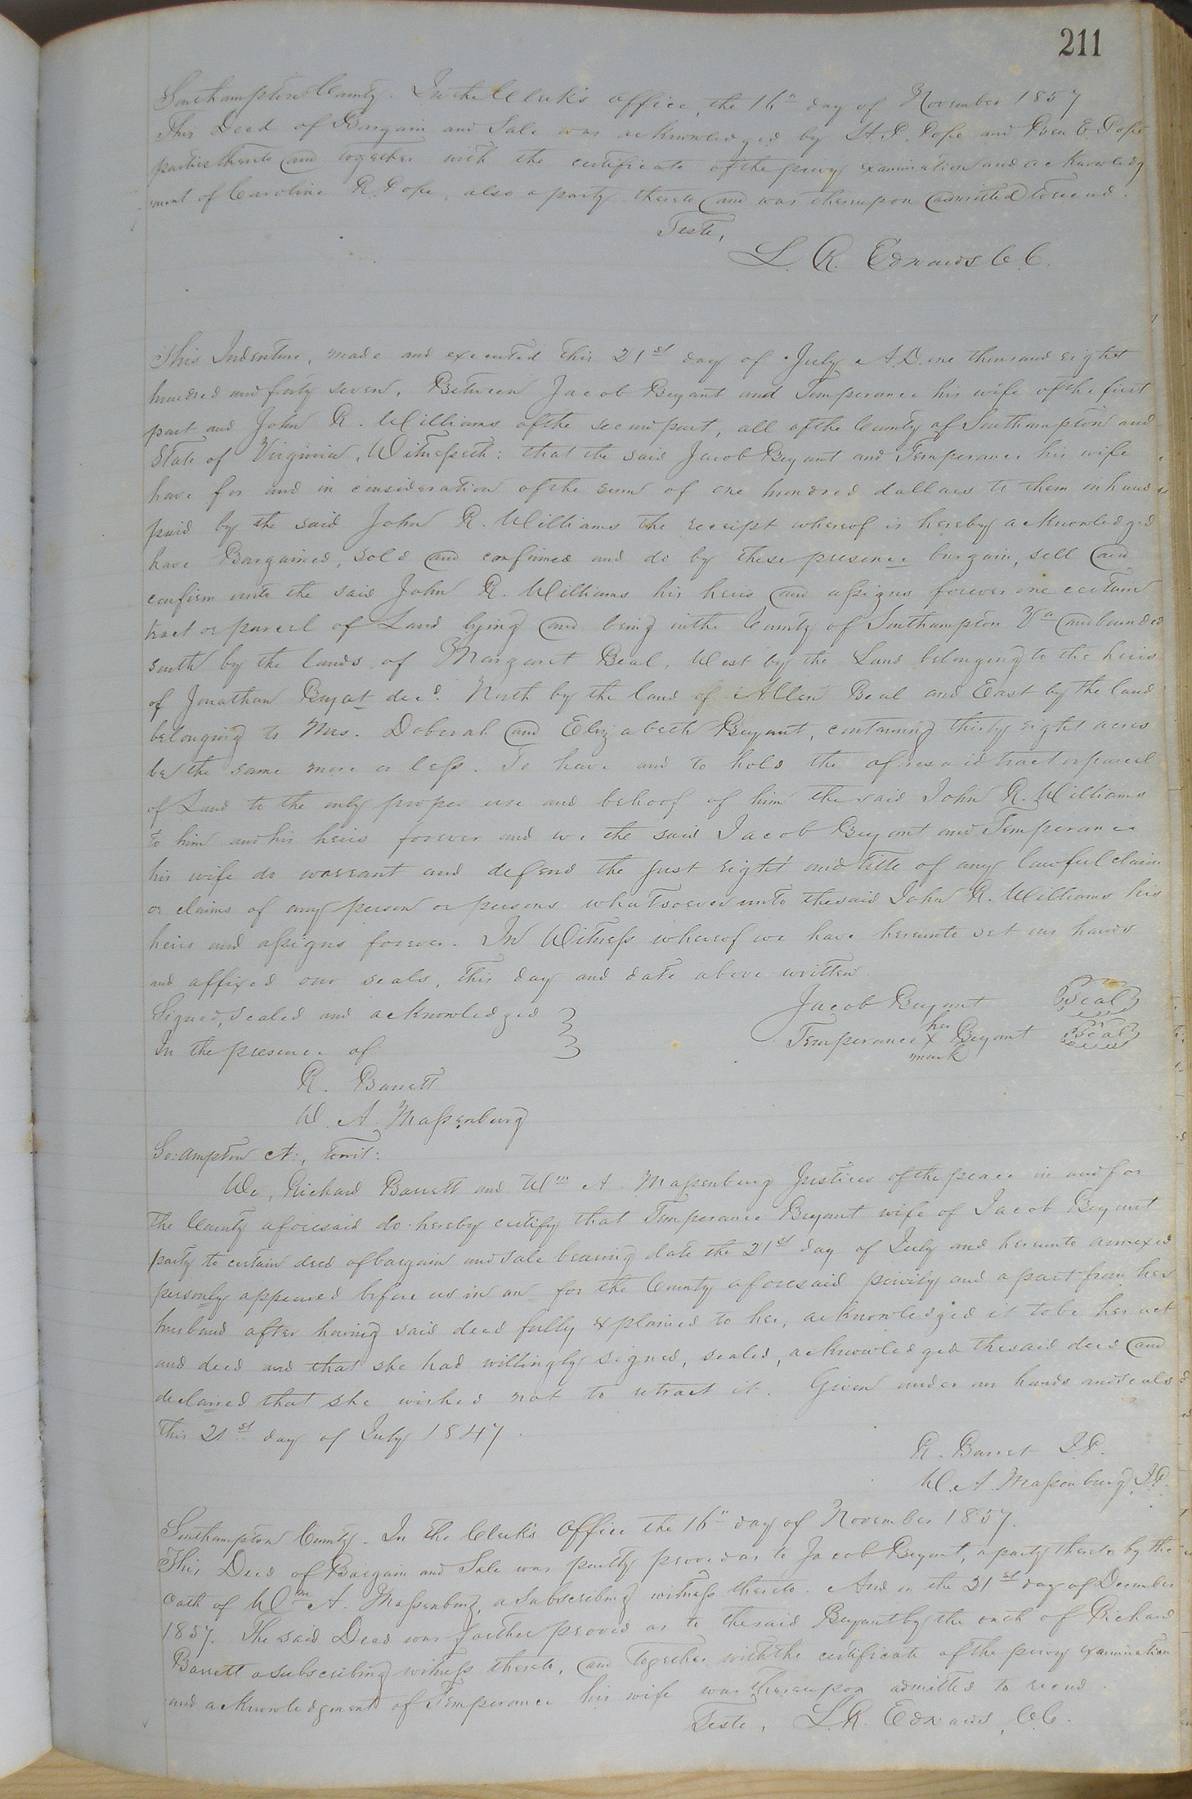 211
Southampton County. In the Clerk's office, the 16" day of November 1857
This Deed of Bargain and Sale was acknowledged by H. P. Pope and E. Pope
parties thereto and together with the certificate of the privy examination and acknowledg
ment of Caroline R. Pope, also a party thereto and was thereupon admitted to record.
Teste,
L. R. Edwards C. C.
This Indenture, made and executed this 21st day of July A.D. one thousand eight
hundred and forty seven, Between Jacob Bryant and Temperance his wife of the first
part and John R. Williams of the secon part, all of the County of Southampton and
State of Virginia, Witnesseth: that the said Jacob Bryant and Temperance his wife
have for and in consideration of the sum of one hundred dollars to them in hand
paid by the said John R. Williams the receipt whereof is hereby acknowledged
have Bargained, sold and confirmed and do by these presence bargain, sell and
confirm unto the said John R. Williams his heirs and assigns forever one certain
tract or parcel of Land lying and being in the County of Southampton Va and bounded
south by the lands of Margaret Beal, West by the Land belonging to the heirs
of Jonathan Bryat decd. North by the land of Allen Beal and East by the land
belonging to Mrs. Deborah and Elizabeth Bryant, containing thirty eight acres
be the same more or less. To have and to hold the aforesaid tract or parcel
of Land to the only proper use and behoof of him the said John R. Williams
to him and his heirs forever and we the said Jacob Bryant and Temperance
his wife do warrant and defend the just right and title of any lawful claim
or claims of any person or persons whatsoever unto the said John R. Williams his
heirs and assigns forever. In Witness whereof we have hereunto set our hands
and affixed our seals, this day and date above written
Signed, sealed and acknowledged } Jacob Bryant Seal
In the presence of } Temperance her x mark Bryant Seal
R. Barrett
W. A. Massenburg
So:ampton Ct:, towit:
We, Richard Barrett and Wm A. Massenburg Justices of the peace in and for
the County aforesaid do hereby certify that Temperance Bryant wife of Jacob Bryant
party to certain deed of bargain and sale bearing date the 21st day of July and hereunto annexed
personly appeared before us in an for the County aforesaid privily and apart from her
husband after having said deed fully explained to her, acknowledged it to be her act
and deed and that she had willingly signed, sealed, acknowledged the said deed and
declared that she wished not to retract it. Given under our hands and seals
this 21st day of July 1847.
R. Barret J.P.
W. A Massenburg J.P.
Southampton County. In the Clerk's Office the 16" day of November 1857.
This Deed of Bargain and Sale was partly proved as to Jacob Bryant, a party thereto by the
oath of Wm A. Massenburg, a subscribing witness thereto. And on the 21st day of December
1857. The said Deed was further proved as to the said Bryant by the oath of Richard
Barrett a subscribing witness thereto, and together with the certificate of the privy examination
and acknowledgment of Temperance his wife was thereupon admitted to record.
Teste, L. R. Edwards, C.C.